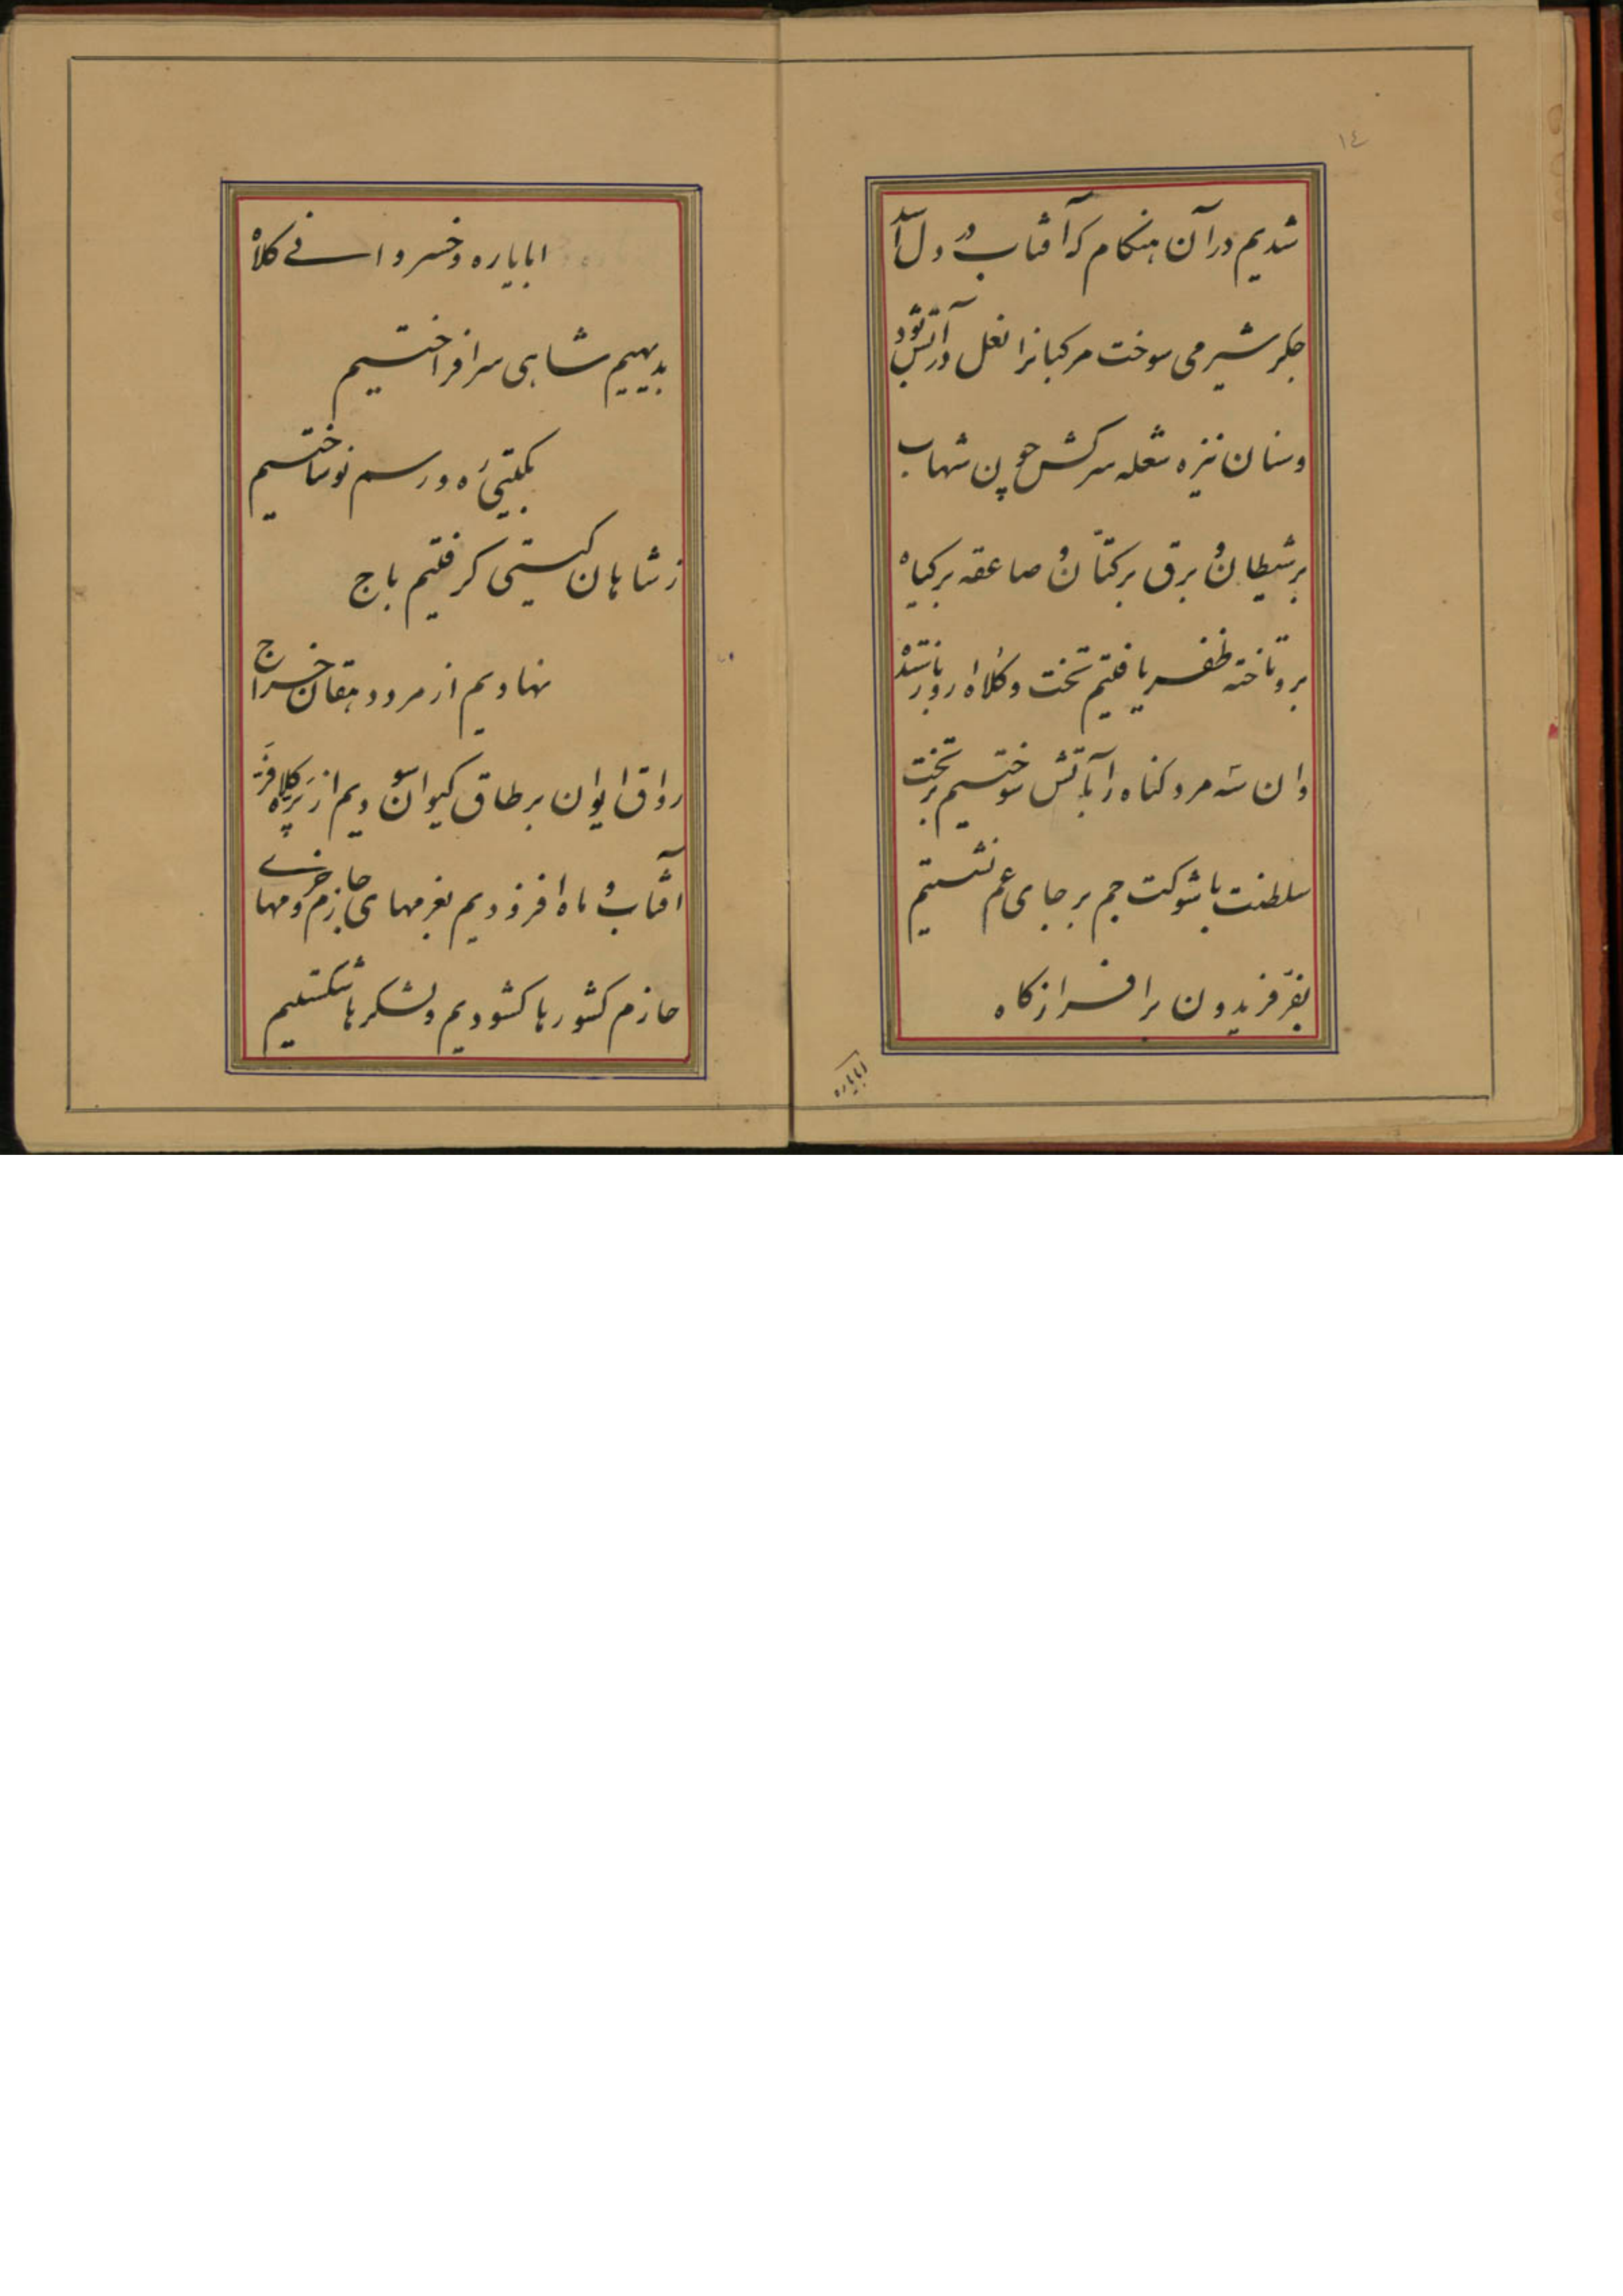 ١٤
شدیم در آن هنکام که آفتاب در دل اسد
جکر شیر می سوخت مرکبانرا نعل در آتش بود
و سنان نیزه شعله سرکش چون شهاب
بر شیطان و برق بر کتان و صاعقه بر کیاه
برو تاخته ظفر یافتیم تخت و کلاه
وان شه مرد کناه را بآتش سوختیم بر تخت
سلطنت با شوکت جم بر جای عم نشستیم
بفر فریدون برافراز کاه
ابایاره
ابا یاره و خسروانی کلاه
بدیهیم شاهی سر افراختیم
بکیتی ره و رسم نو ساختیم
ز شاهان کیتی کرفتیم باج
نهادیم از مرد دهقان خراج
رواق ایوان بر طاق کیوان سودیم از پر کلاه فر
آفتاب و ماه افزودیم بعزمهای جازم و حزمهای
حازم کشورها کشودیم و لشکرها شکستیم